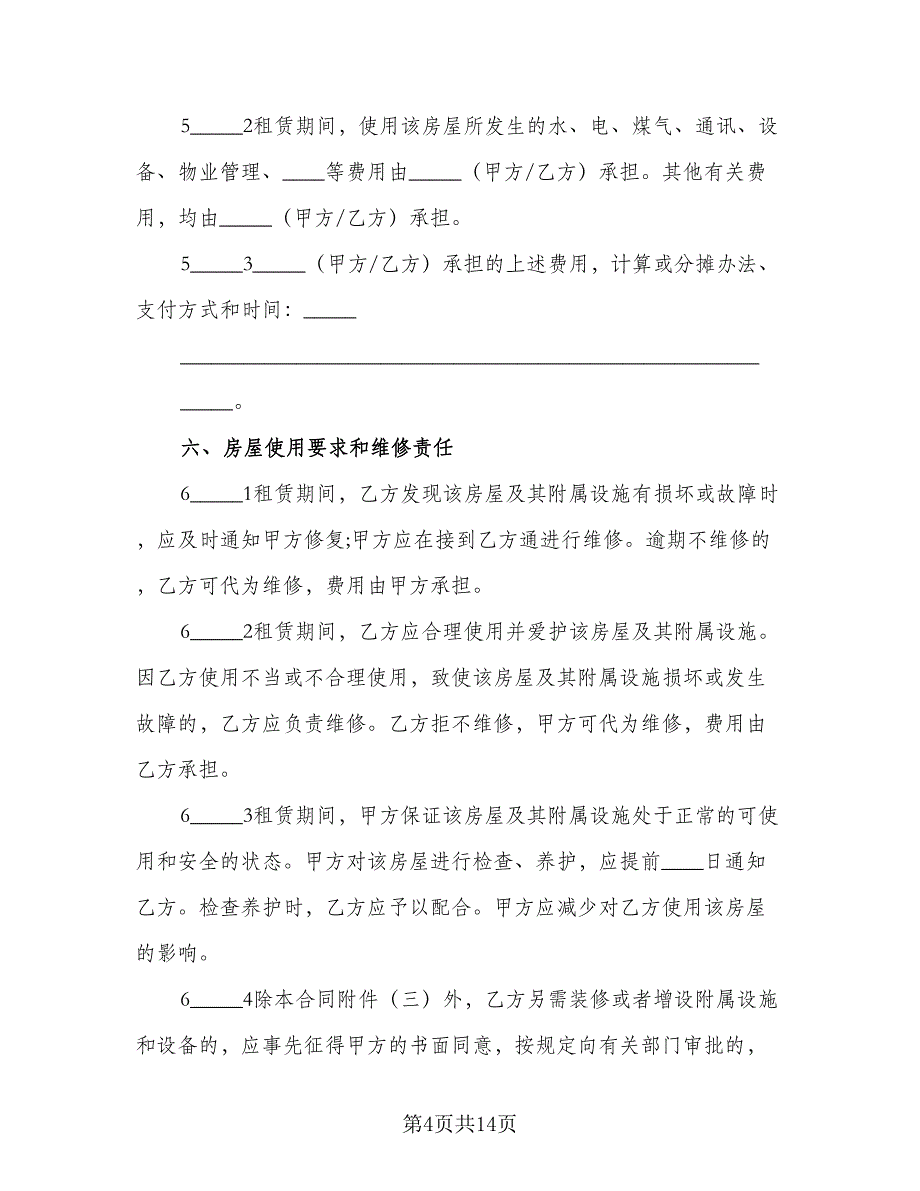 5_____2租赁期间，使用该房屋所发生的水、电、煤气、通讯、设
备、物业管理、____等费用由_____（甲方/乙方）承担。其他有关费
用，均由_____（甲方/乙方）承担。
5_____3_____（甲方/乙方）承担的上述费用，计算或分摊办法、
支付方式和时间：_____
_______________________________________________________
_____。
六、房屋使用要求和维修责任
6_____1租赁期间，乙方发现该房屋及其附属设施有损坏或故障时
，应及时通知甲方修复;甲方应在接到乙方通进行维修。逾期不维修的
，乙方可代为维修，费用由甲方承担。
6_____2租赁期间，乙方应合理使用并爱护该房屋及其附属设施。
因乙方使用不当或不合理使用，致使该房屋及其附属设施损坏或发生
故障的，乙方应负责维修。乙方拒不维修，甲方可代为维修，费用由
乙方承担。
6_____3租赁期间，甲方保证该房屋及其附属设施处于正常的可使
用和安全的状态。甲方对该房屋进行检查、养护，应提前____日通知
乙方。检查养护时，乙方应予以配合。甲方应减少对乙方使用该房屋
的影响。
6_____4除本合同附件（三）外，乙方另需装修或者增设附属设施
和设备的，应事先征得甲方的书面同意，按规定向有关部门审批的，
第4页共14页